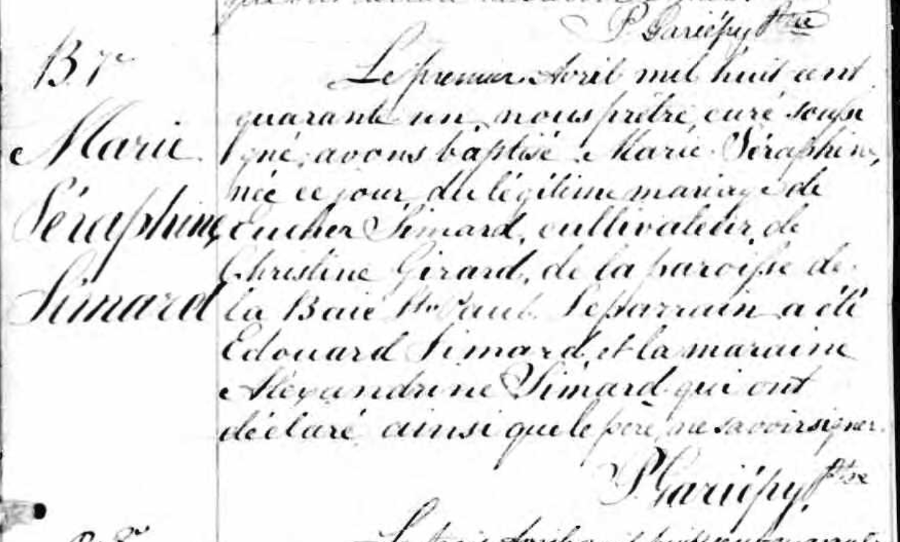 P Gariépy Ptre
B 7e
Marie
Séraphine
Simard
Le premier Avril mil huit cent
quarante un, nous prêtre, curé soussi
gné, avons baptisé Marie Séraphine,
née ce jour, du légitime mariage de
Eucher Simard, cultivateur, de
Christine Girard, de la paroisse de
la Baie St Paul. Le parrain a été
Edouard Simard, et la maraine
Aléxandrine Simard qui ont
déclaré ainsi que le père, ne savoir signer.
P Gariépy Ptre